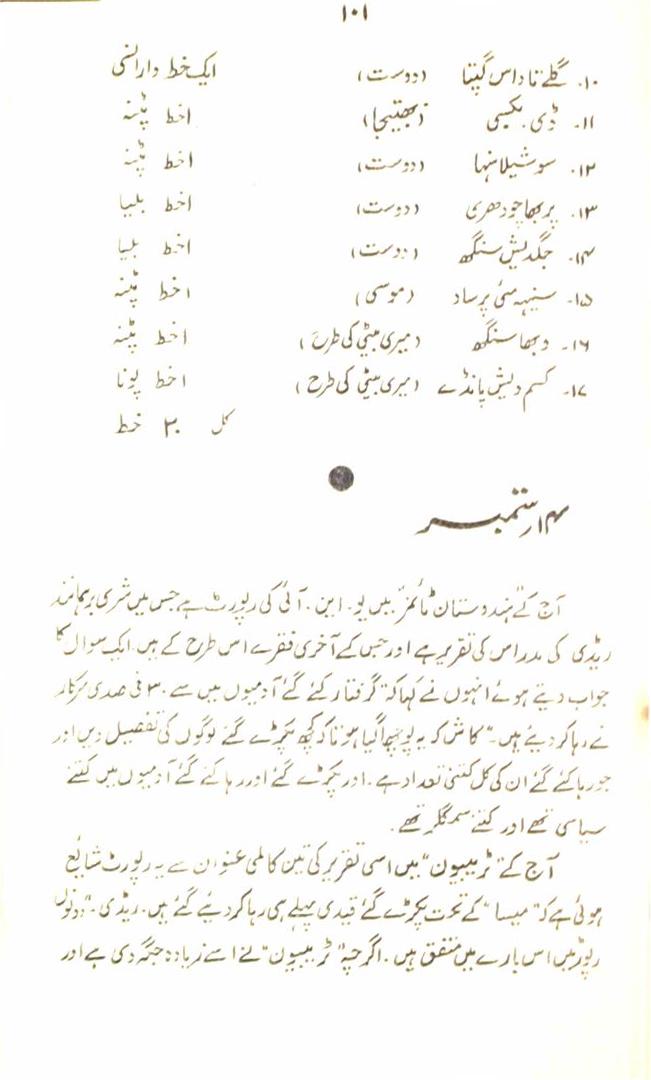 ۱۰۱
۱۰۔ گلے تا داس گپتا (دوست) ایک خط دارانسی
۱۱۔ ڈی۔ بکسیی (بھتیجا) ۱خط پٹنہ
۱۲۔ سوشیلا سنہا (دوست) ۱خط پٹنہ
۱۳۔ پربھا چودھری (دوست) ۱خط بلیا
۱۴۔ جگدیش سنگھ (دوست) ۱خط بلیا
۱۵۔ سنیہہ مئی پرساد (موسی) ۱خط پٹنہ
۱۶۔ وبھا سنگھ (میری بیٹی کی طرح) ۱خط پٹنہ
۱۷۔ کسم دیش پانڈے (میری بیٹی کی طرح) ۱خط پونا
کل ۲۰ خط
۱۴ ستمبر
آج کے "ہندوستان ٹائمز" میں یو۔ این۔ آئی کی رپورٹ ہے جس میں شری برہمانند
ریڈی کی مدراس کی تقریر ہے اور جس کے آخری فقرے اس طرح کے ہیں۔ ایک سوال کا
جواب دیتے ہوئے انہوں نے کہا کہ "گرفتار کئے گئے آدمیوں میں سے ۳۰ فی صدی سرکار
نے رہا کر دیئے ہیں۔" کاش کہ یہ پوچھا گیا ہوتا کہ کچھ پکڑے گئے لوگوں کی تفصیل دیں اور
جو رہا کئے گئے ان کی کل کتنی تعداد ہے۔ اور پکڑے گئے اور رہا کئے گئے آدمیوں میں کتنے
سیاسی تھے اور کتنے سمگلر تھے۔
آج کے "ٹریبیون" میں اسی تقریر کی تین کالمی عنوان سے یہ رپورٹ شایع
ہوئی ہے کہ "میسا" کے تحت پکڑے گئے قیدی پہلے ہی رہا کر دیئے گئے ہیں۔ ریڈی۔" دونوں
رپورٹیں اس بارے میں متفق ہیں۔ اگرچہ "ٹریبیون" نے اسے زیادہ جگہ دی ہے اور